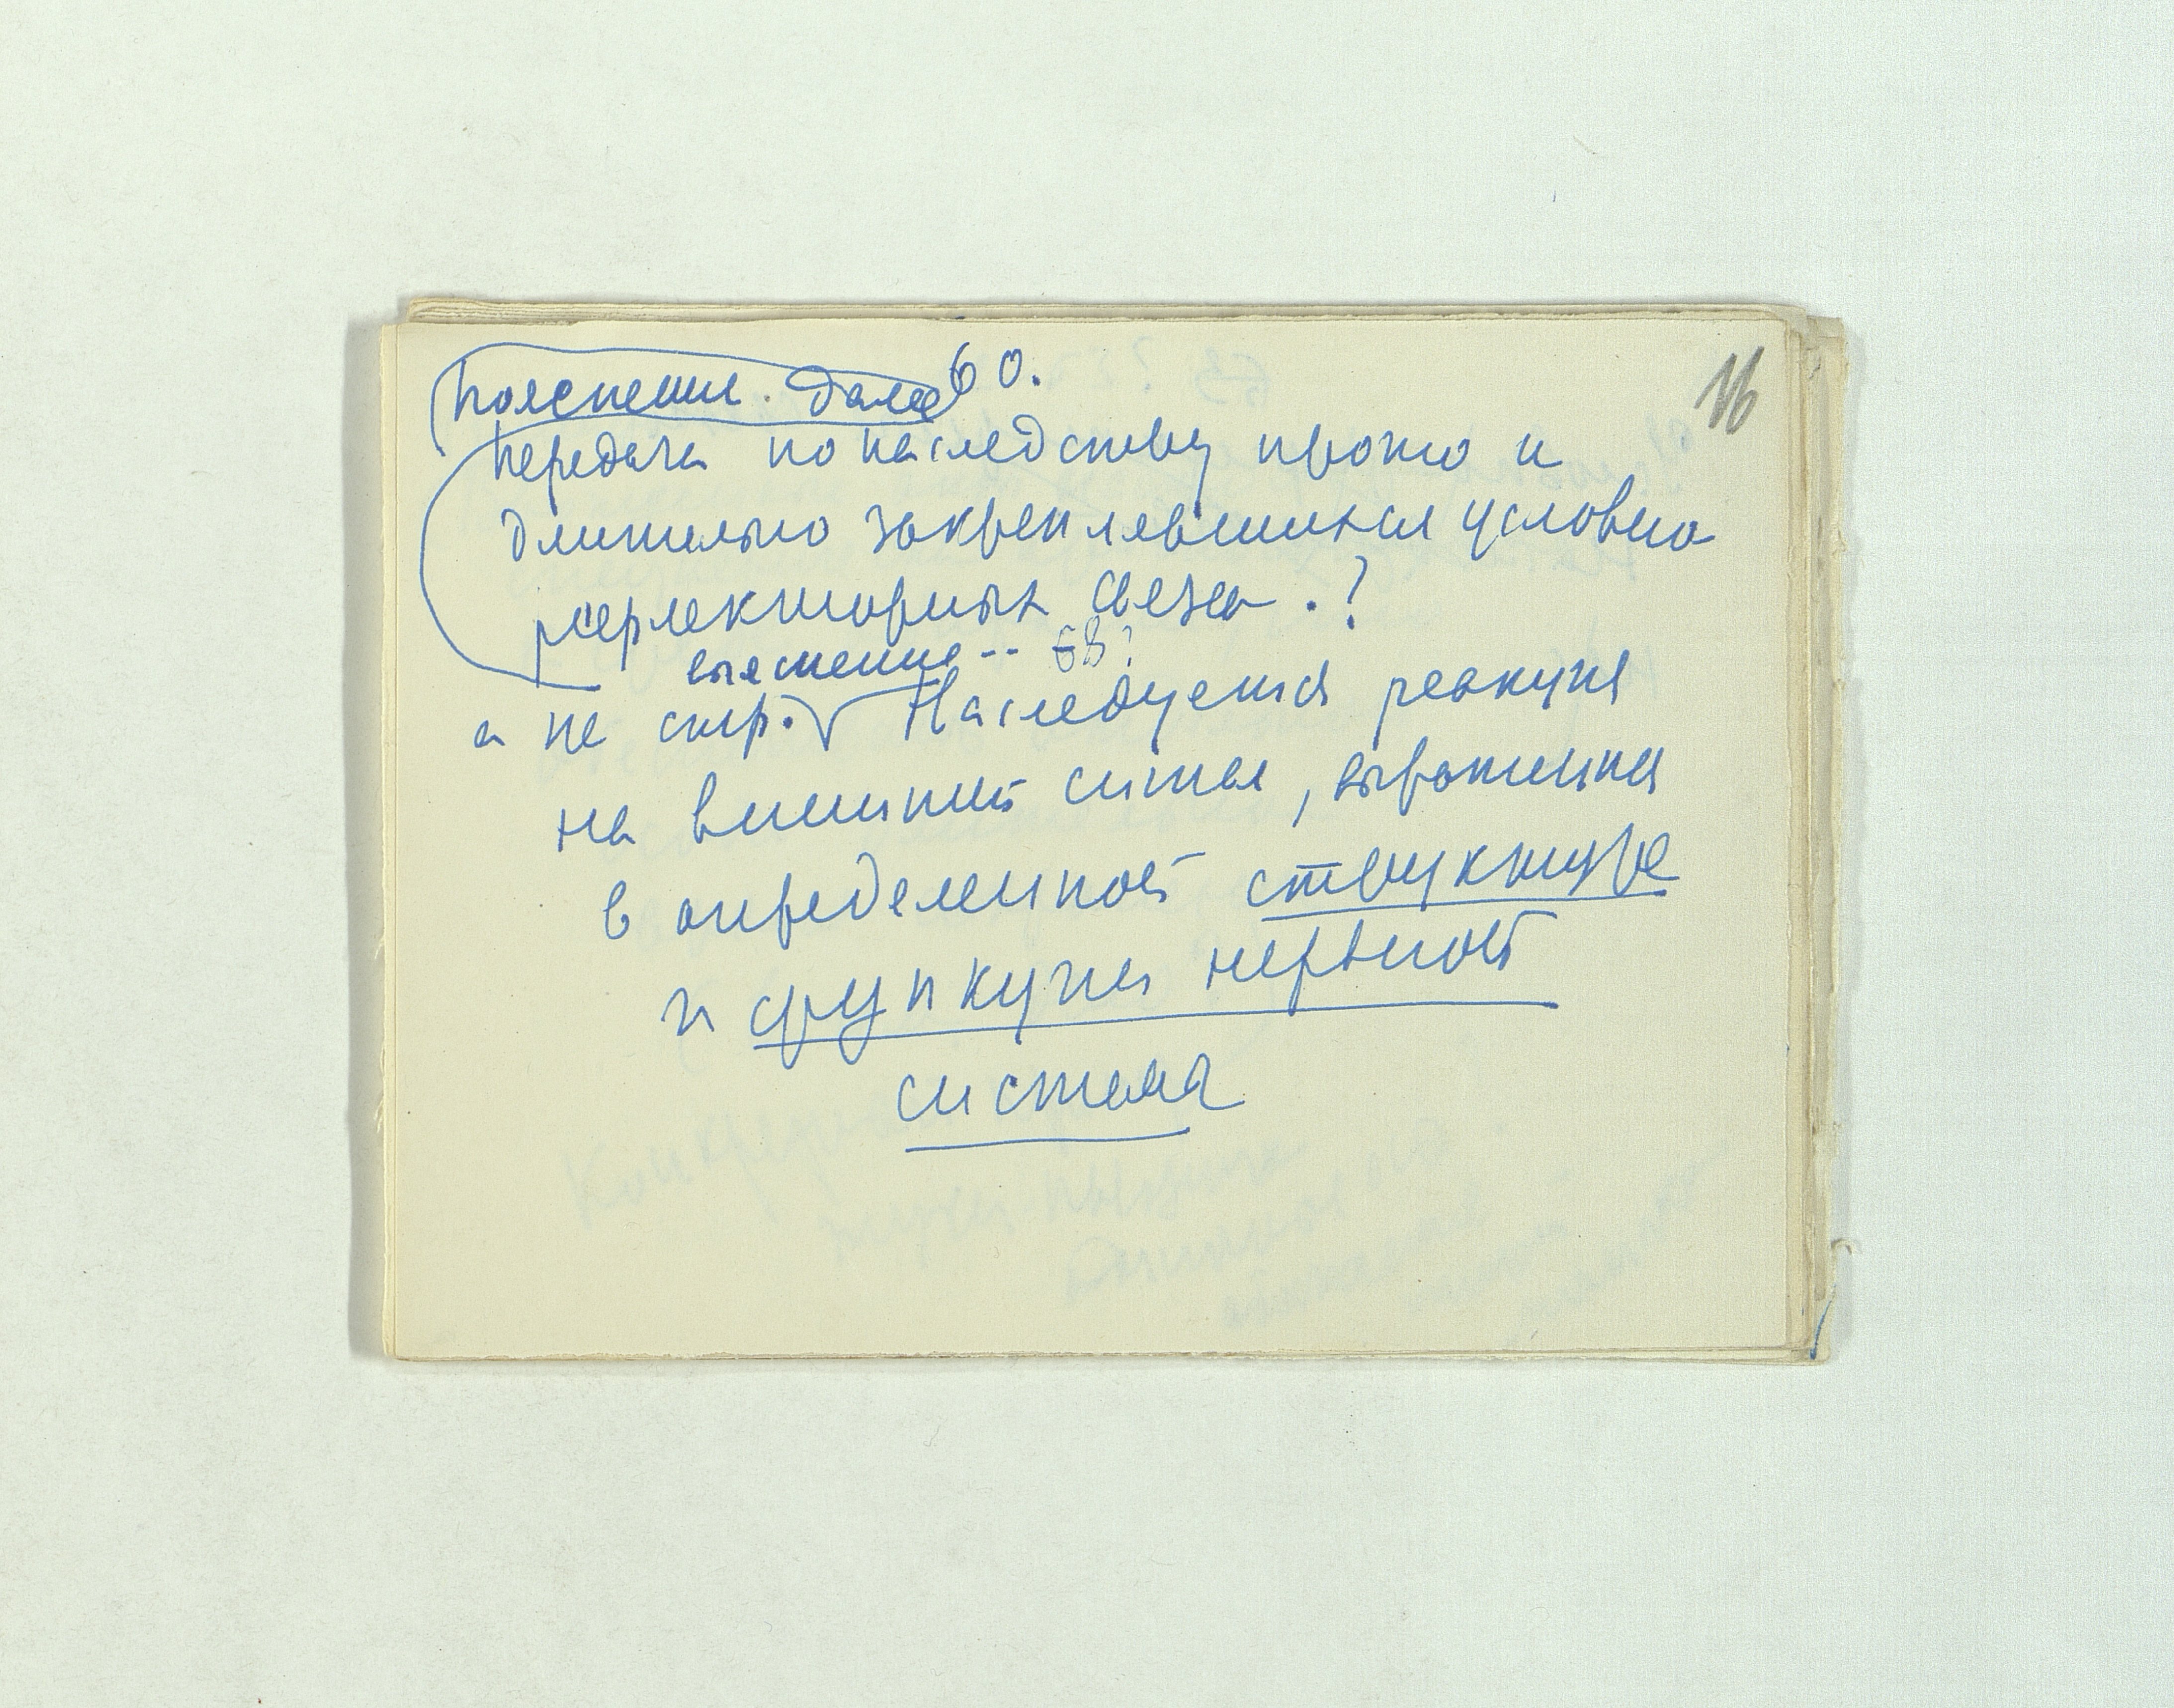 60.
16
Пояснения. далее
Передача по наследству прочно и
длительно закреплявшихся условно
рефлекторных связей.?
выяснение -- 63?
а не стр. Наследуется реакция
на внешний сигнал, выраженная
в определенной структуре
и функции нервной
система